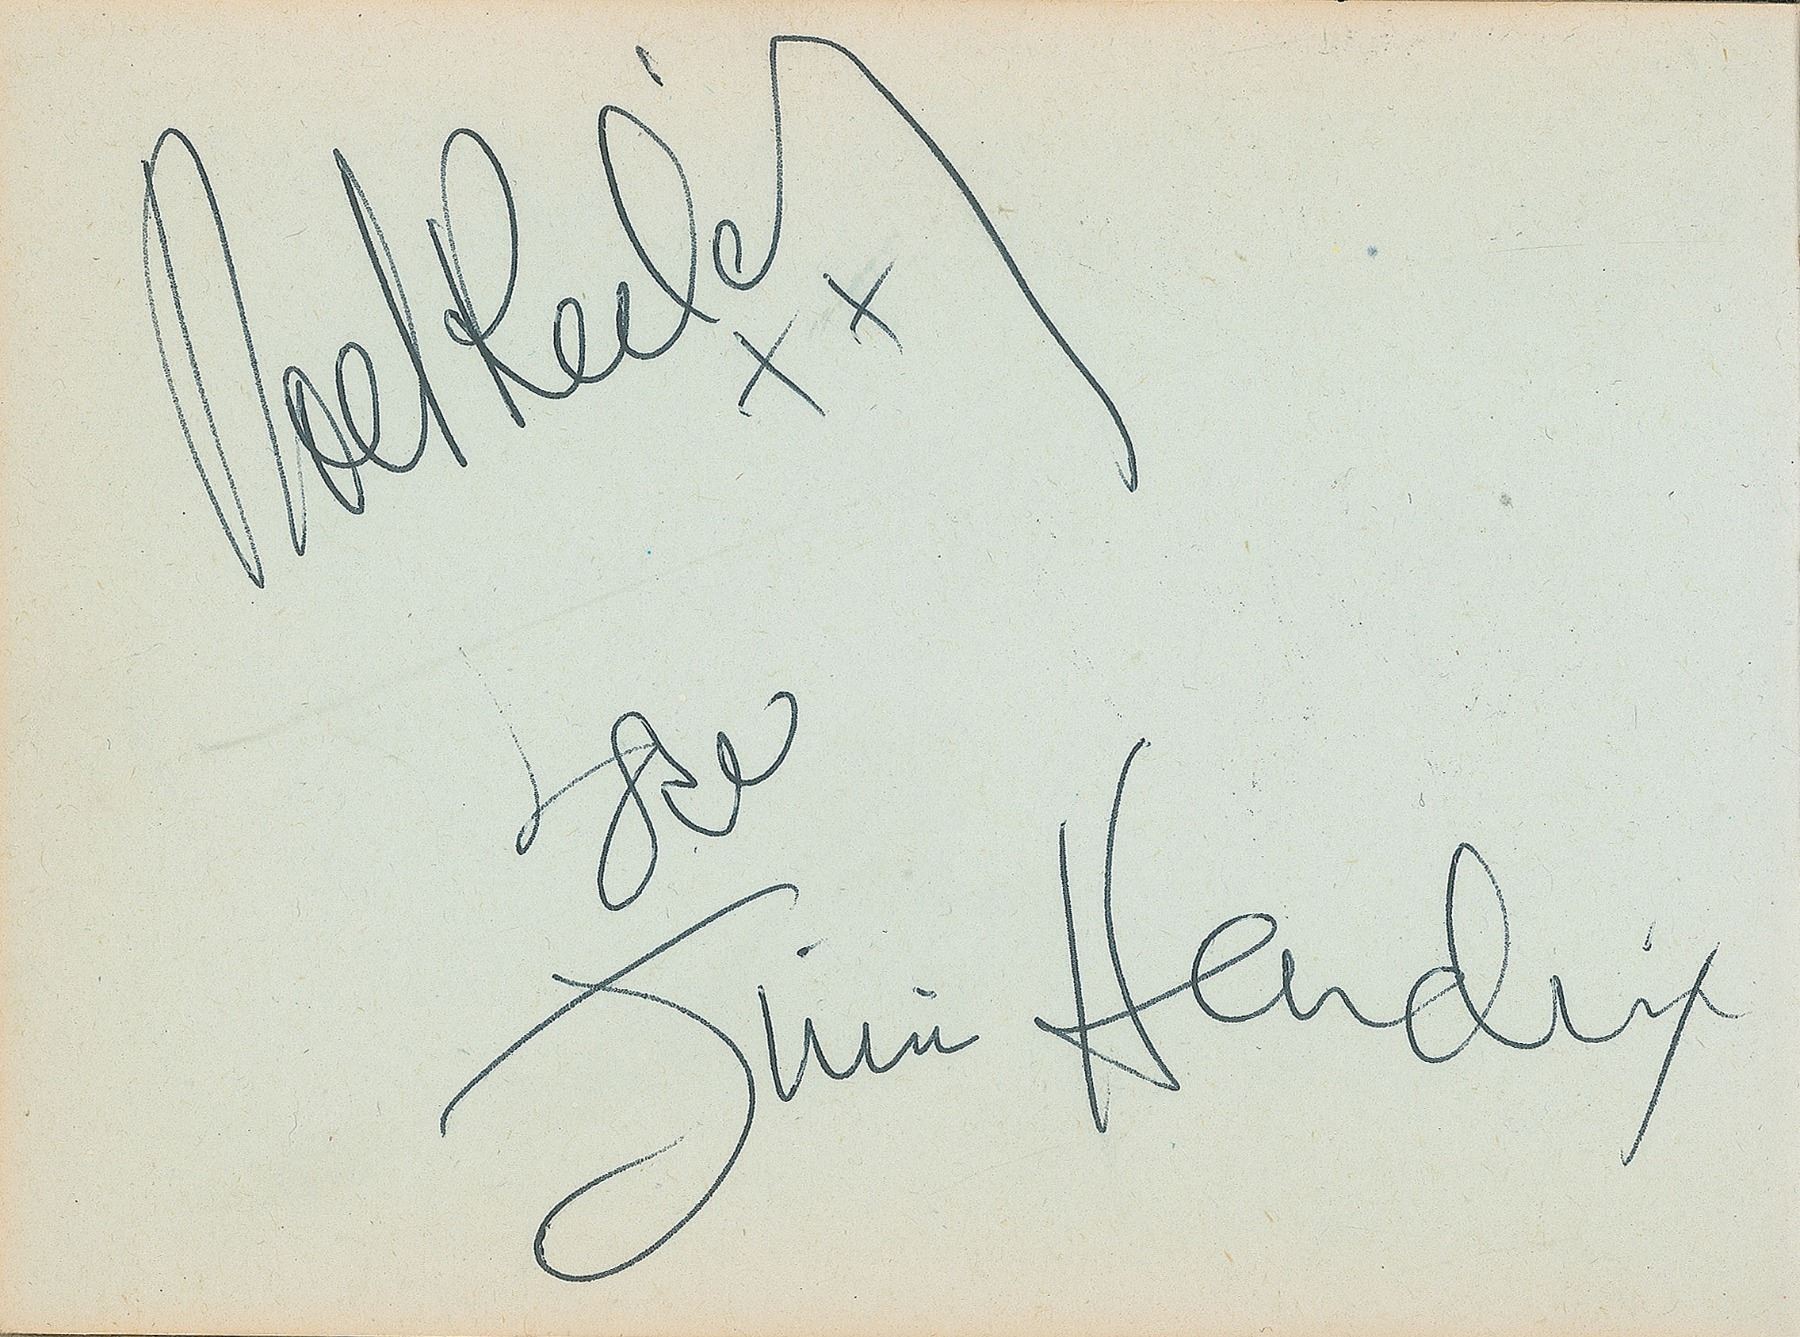 Noel Redding
x x
Love
Jimi Hendrix